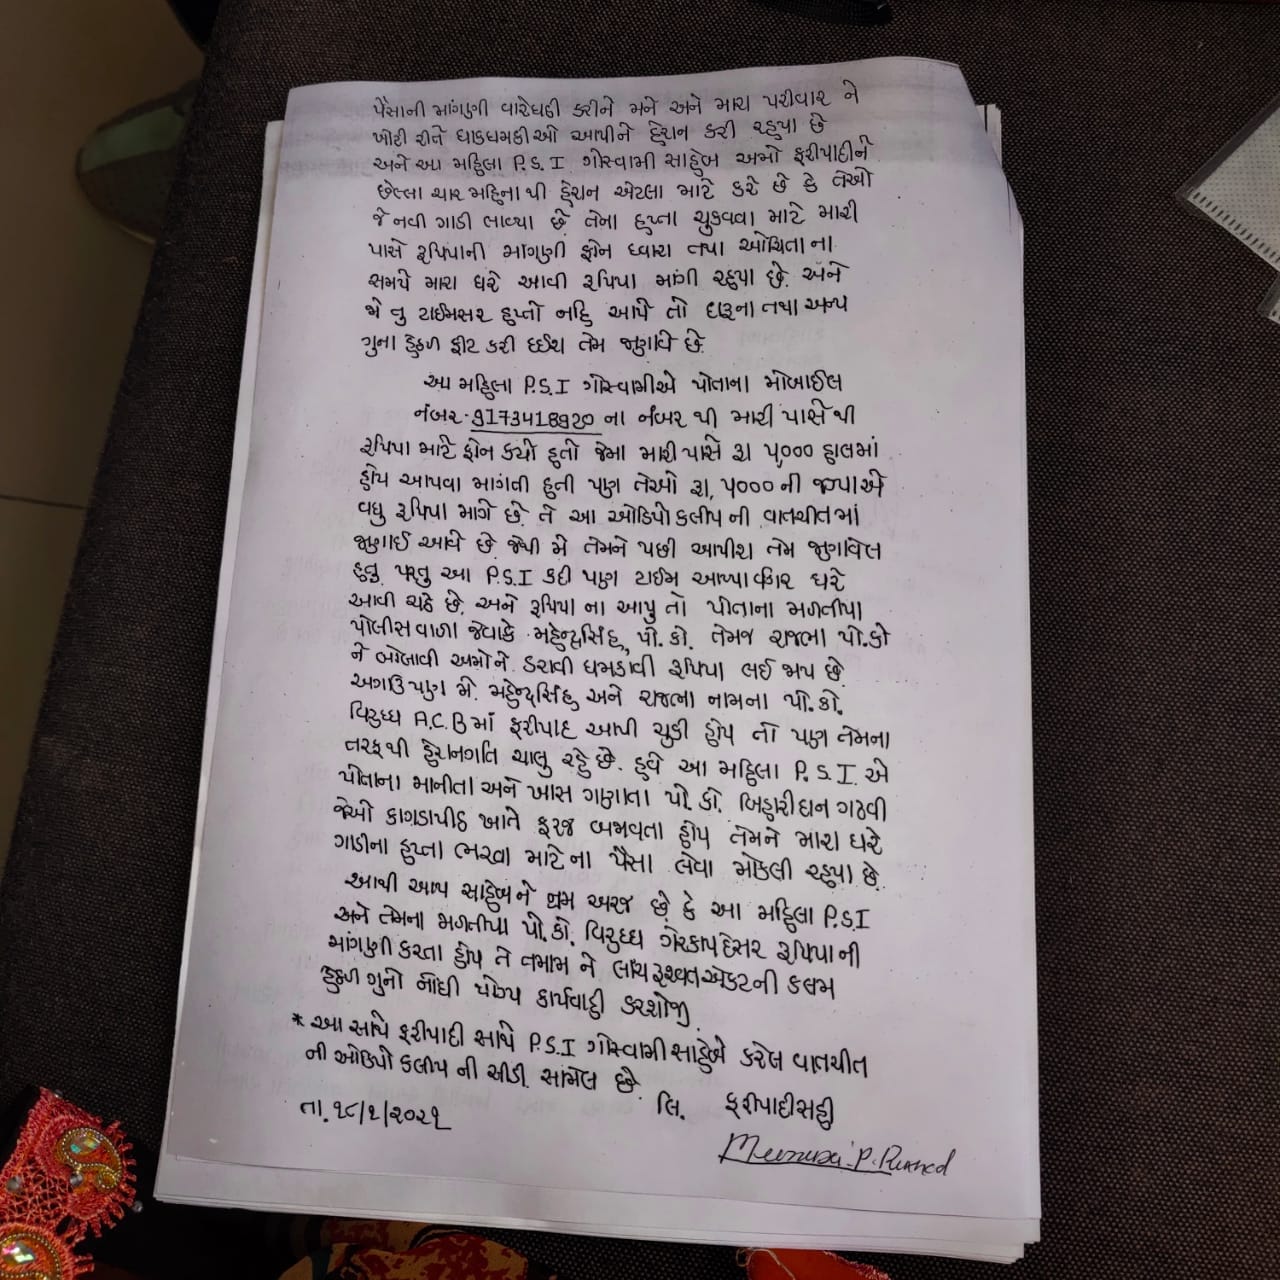 પૈસાની માંગણી વારેઘડી કરીને મને અને મારા પરીવાર ને
ખોટી રીતે ધાકધમકીઓ આપીને હેરાન કરી રહ્યા છે
અને આ મહિલા P.S.I ગોસ્વામી સાહેબ અમો ફરીયાદીને
છેલ્લા ચાર મહિના થી હેરાન એટલા માટે કરે છે કે તેઓ
જે નવી ગાડી લાવ્યા છે તેના હપ્તા ચુકવવા માટે મારી
પાસે રૂપિયાની માંગણી ફોન ધ્વારા તથા ઓચિંતા ના
સમયે મારા ઘરે આવી રૂપિયા માંગી રહ્યા છે. અને
જો તુ ટાઈમસર હપ્તો નહિ આપે તો દારૂના તથા અન્ય
ગુના હેઠળ ફીટ કરી દઈશ તેમ જણાવે છે.
આ મહિલા P.S.I ગોસ્વામીએ પોતાના મોબાઈલ
નંબર-9173418920 ના નંબર થી મારી પાસે થી
રૂપિયા માટે ફોન કર્યો હતો જેમા મારી પાસે રૂા ૫,૦૦૦ હાલમાં
હોય આપવા માંગતી હતી પણ તેઓ રૂા, ૫૦૦૦ ની જગ્યાએ
વધુ રૂપિયા માગે છે. તે આ ઓડિયો કલીપ ની વાતચીતમાં
જણાઈ આવે છે જેથી મે તેમને પછી આપીશ તેમ જણાવેલ
હતુ પરતુ આ P.S.I કદી પણ ટાઈમ આપ્યા વગર ઘરે
આવી ચઢે છે. અને રૂપિયા ના આપુ તો પોતાના મળતીયા
પોલીસ વાળા જેવાકે મહેન્દ્રસિંહ, પો.કો. તેમજ રાજભા પો.કો
ને બોલાવી અમોને ડરાવી ધમકાવી રૂપિયા લઈ જાય છે.
અગાઉ પણ મે. મહેન્દ્રસિંહ અને રાજભા નામના પો.કો.
વિરુધ્ધ A.C.B માં ફરીયાદ આપી ચુકી હોય તો પણ તેમના
તરફથી હેરાનગતિ ચાલુ રહે છે. હવે આ મહિલા P.S.I. એ
પોતાના માનીતા અને ખાસ ગણાતા પો.કો. બિહારીદાન ગઢવી
જેઓ કાગડાપીઠ ખાતે ફરજ બજાવતા હોય તેમને મારા ઘરે
ગાડીના હપ્તા ભરવા માટે ના પૈસા લેવા મોકલી રહ્યા છે.
આથી આપ સાહેબ ને નમ્ર અરજ છે કે આ મહિલા P.S.I
અને તેમના મળતીયા પો.કો. વિરુધ્ધ ગેરકાયદેસર રૂપિયા ની
માંગણી કરતા હોય તે તમામ ને લાંચ રૂશ્વત એકટ ની કલમ
હેઠળ ગુનો નોંધી યોગ્ય કાર્યવાહી કરશોજી.
* આ સાથે ફરીયાદી સાથે P.S.I ગોસ્વામી સાહેબે કરેલ વાતચીત
ની ઓડિયો કલીપ ની સીડી. સામેલ છે.
લિ. ફરીયાદીસહી
તા.૧૮/૧/૨૦૨૧